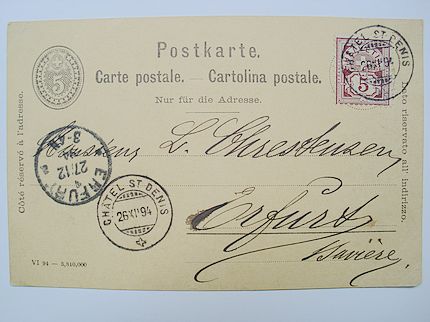 5
Postkarte.
Carte postale. — Cartolina postale.
Nur für die Adresse.
Côté réservé à l'adresse.
Lato riservato all' indirizzo.
CHÂTEL ST DENIS
26 XII 94
5
L. Chrestensen
Erfurt
Bavière.
ERFURT
27/12
CHÂTEL ST DENIS
26 XII 94
VI 94 — 5,810,000